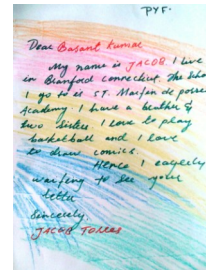 PYF.
Dear Basant Kumar
My name is JACOB I live
in Branford connecticut. The
I go to is ST. de
Academy. I have a brother &
two sisters I love to play
basketball and I love
to draw comics.
Hence I eagerly
waiting to see your
letter
Sincerely,
JACOB Torres